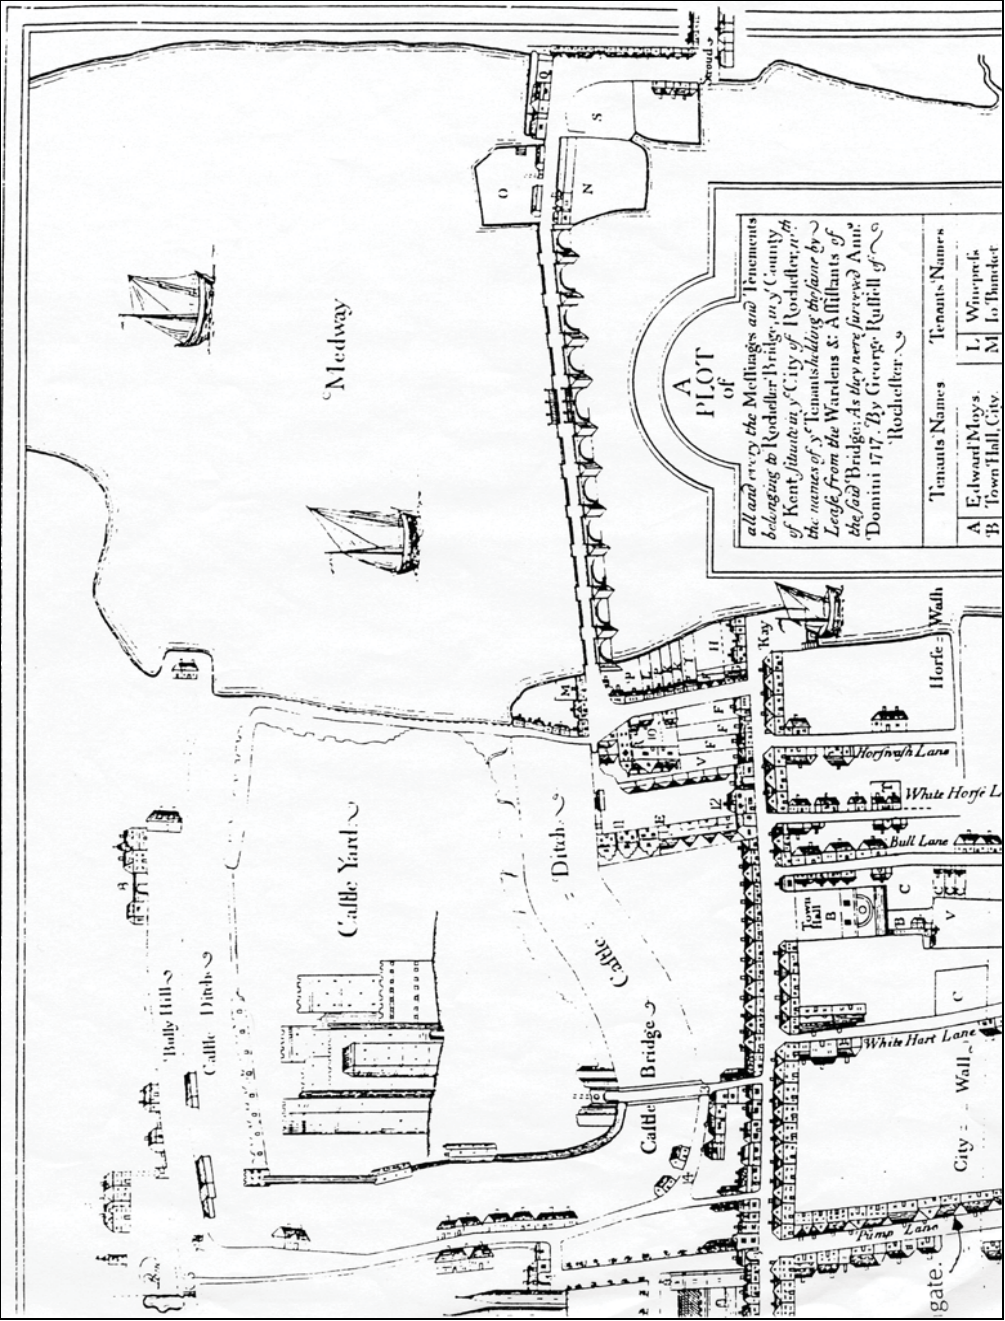 A
PLOT
of
all and every the Messuages and Tenements
belonging to Rochester Bridge, in yᵉ County
of Kent, situate in yᵉ City of Rochester, wᵗʰ
the names of yᵉ Tenants holding the same by
Lease from the Wardens & Assistants of
the said Bridge: As they were survey'd Annᵒ
Domini 1717. By George Russell of
Rochester.
Tenants Names
Tenants Names
A Edward Moys.
B Town Hall, City.
L
M
Medway
Stroud
Q
O
N
S
M
P
H
Kay
Horse Wash
Horswash Lane
White Horse L
Bull Lane
Town
Hall
B
C
B
V
C
White Hart Lane
City Wall
Pump Lane
gate.
Castle Yard
Castle Ditch
Castle Bridge
Bully Hill
Castle Ditch
F
F
F
V
10
11
12
E
13
14